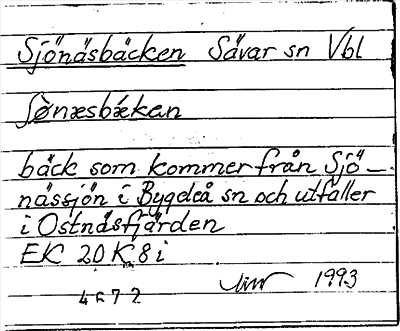 Sjönäsbäcken Sävar sn Vbl
bäck som kommer från Sjö-
nässjön i Bygdeå sn och utfaller
i Ostnäsfjärden
EK 20K8i
1993
4672